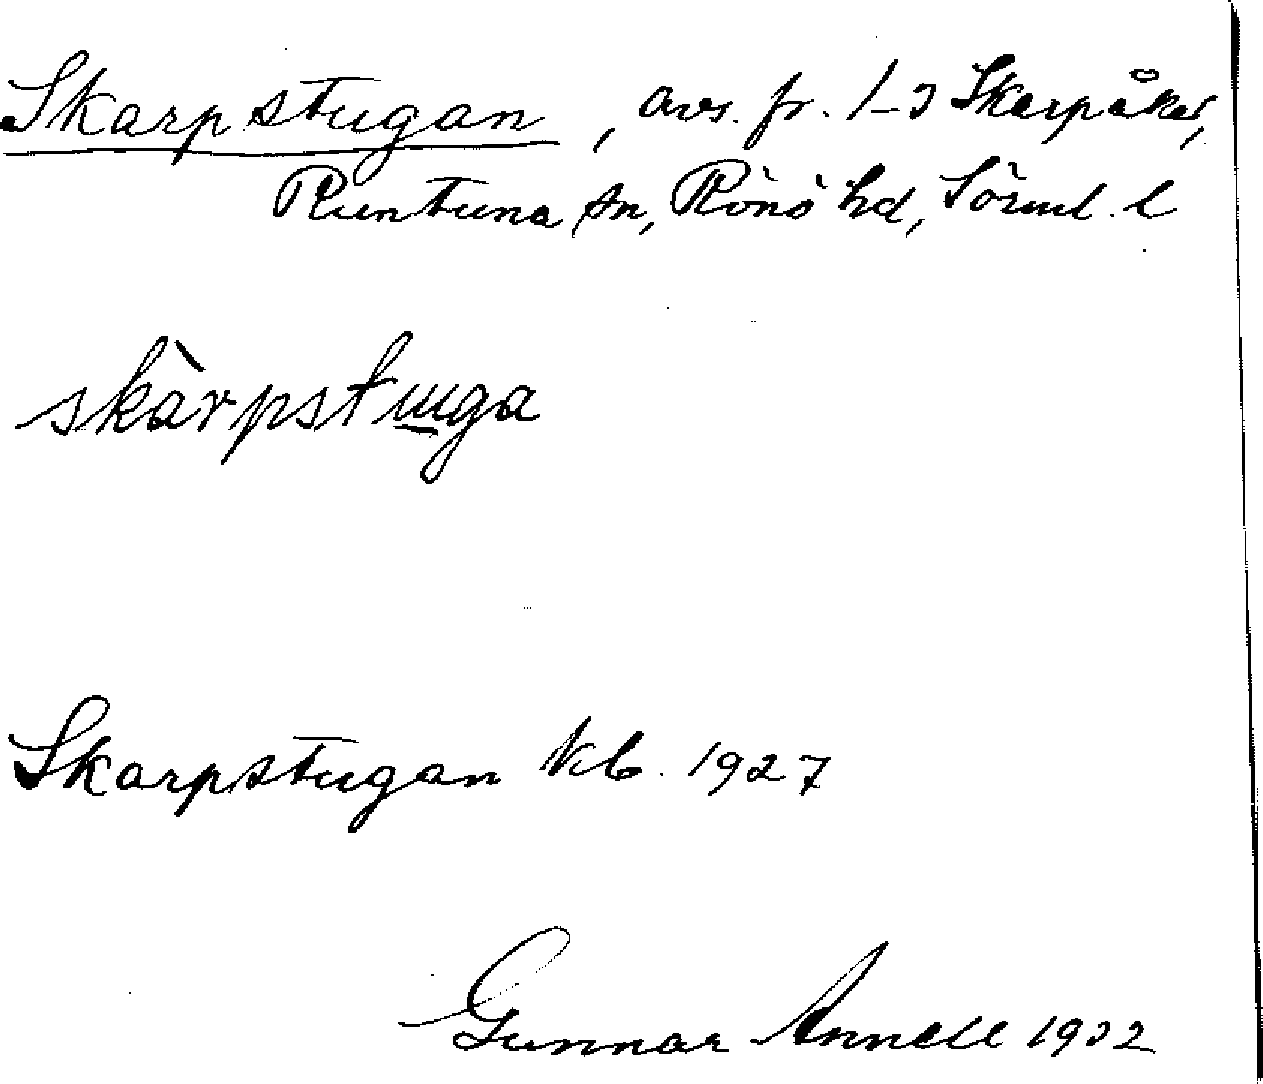 Skarpstugan, avs. fr. 1-3 Skarpåker,
Runtuna sn, Rönö hd, Söruml. l
skàrpstuga
Skarpstugan kb. 1927
Gunnar Annell 1932